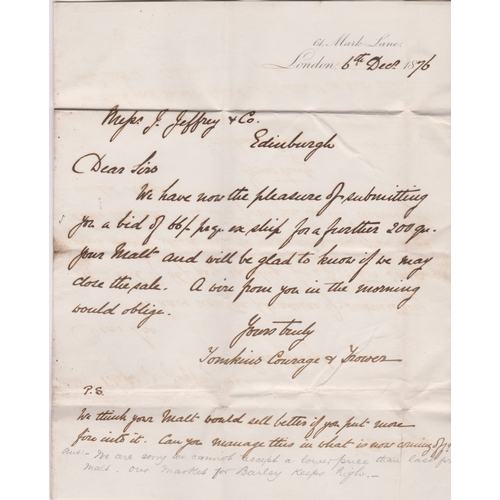 61. Mark Lane.
London, 6th Decr 1876
Messrs J. Jeffrey & Co.
Edinburgh
Dear Sirs
We have now the pleasure of submitting
you a bid of 66/- per qr. ex. ship for a further 200 qrs.
your Malt and will be glad to know if we may
close the sale. A wire from you in the morning
would oblige.
Yours truly
Tomkins Courage & Trower
P.S.
We think your Malt would sell better if you put more
fire into it. Can you manage this in what is now coming
ans. - We are sorry we cannot accept a lower price than last for
malt. our market for Barley keeps high. -